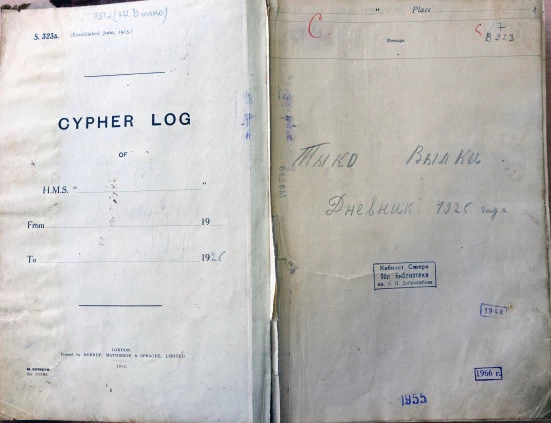 S. 323a.
(Established June, 1915.)
CYPHER LOG
OF
H.M.S. " "
From 19
To 1926
LONDON:
Printed by HARRISON
" Place
Message
С
7
В 923
Тыко Вылки
Дневник 1926 года
Кабинет Севера
Обл Библиотеки
им. А. Н. Добролюбова
1948
1966 г.
1955